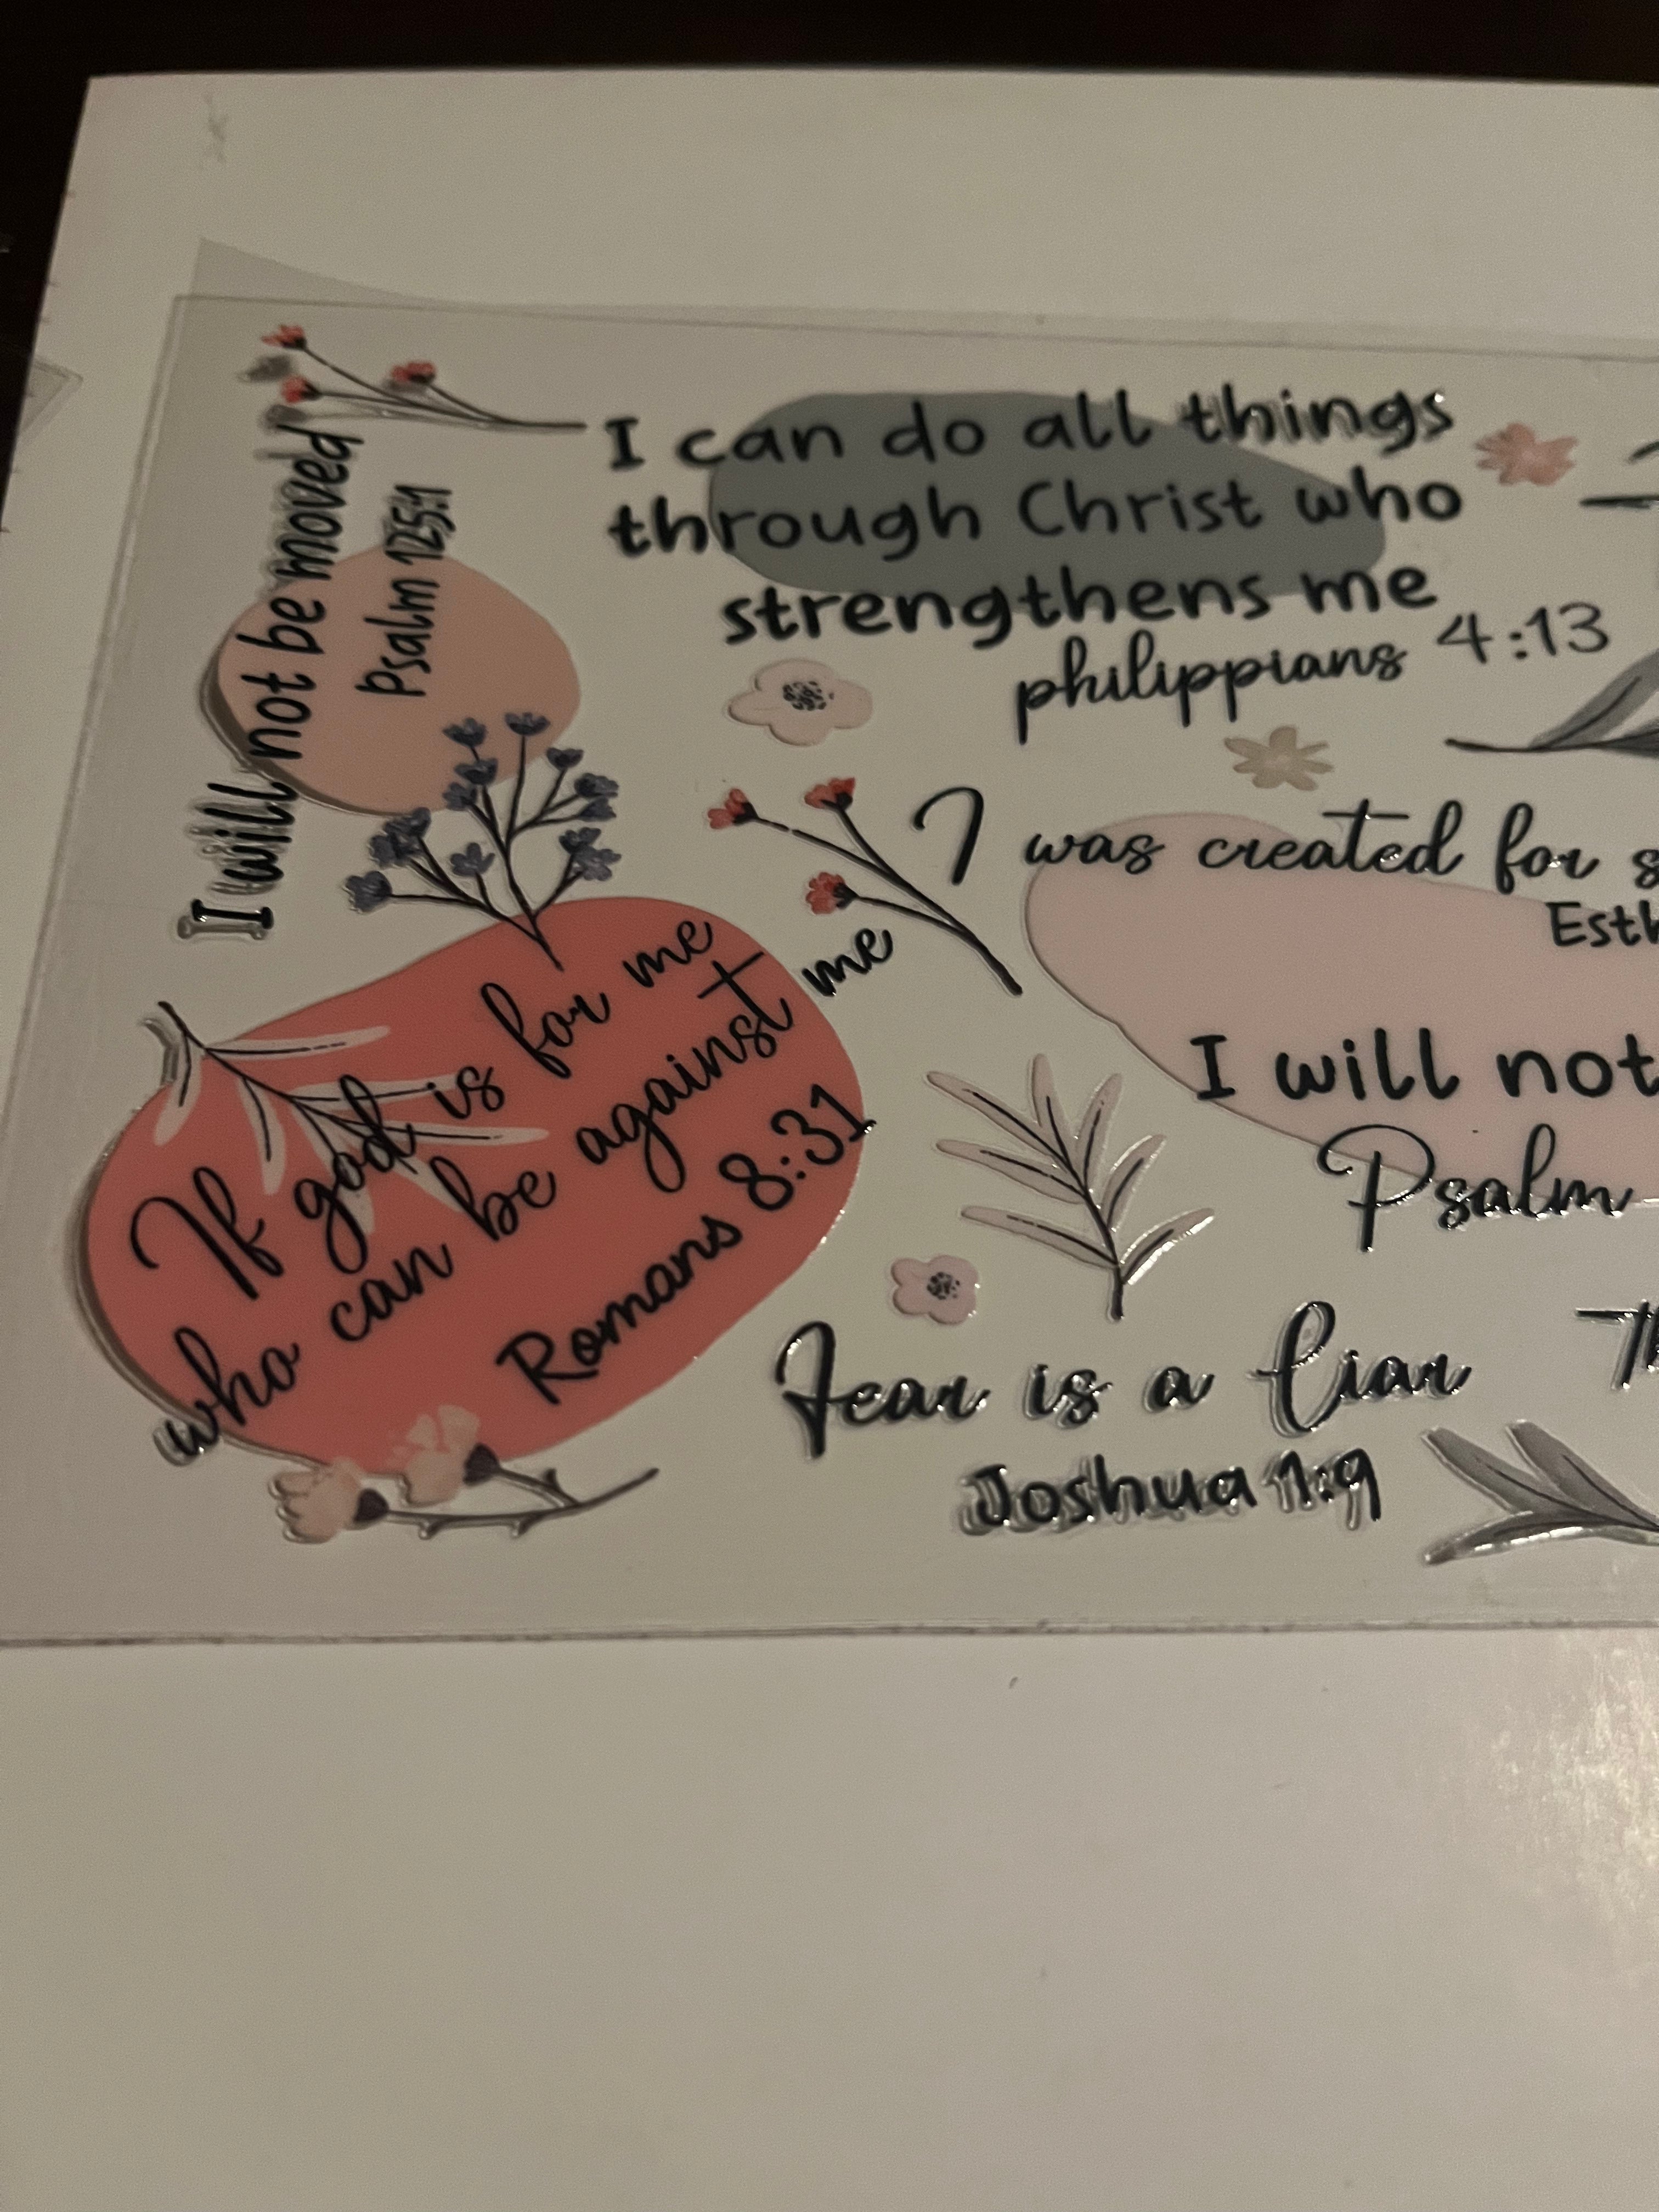 I will not be moved
Psalm 125:1
I can do all things
through Christ who
strengthens me
philippians 4:13
I was created for
I will not
Psalm
If god is for me
who can be against me
Romans 8:31
Fear is a liar
Joshua 1:9